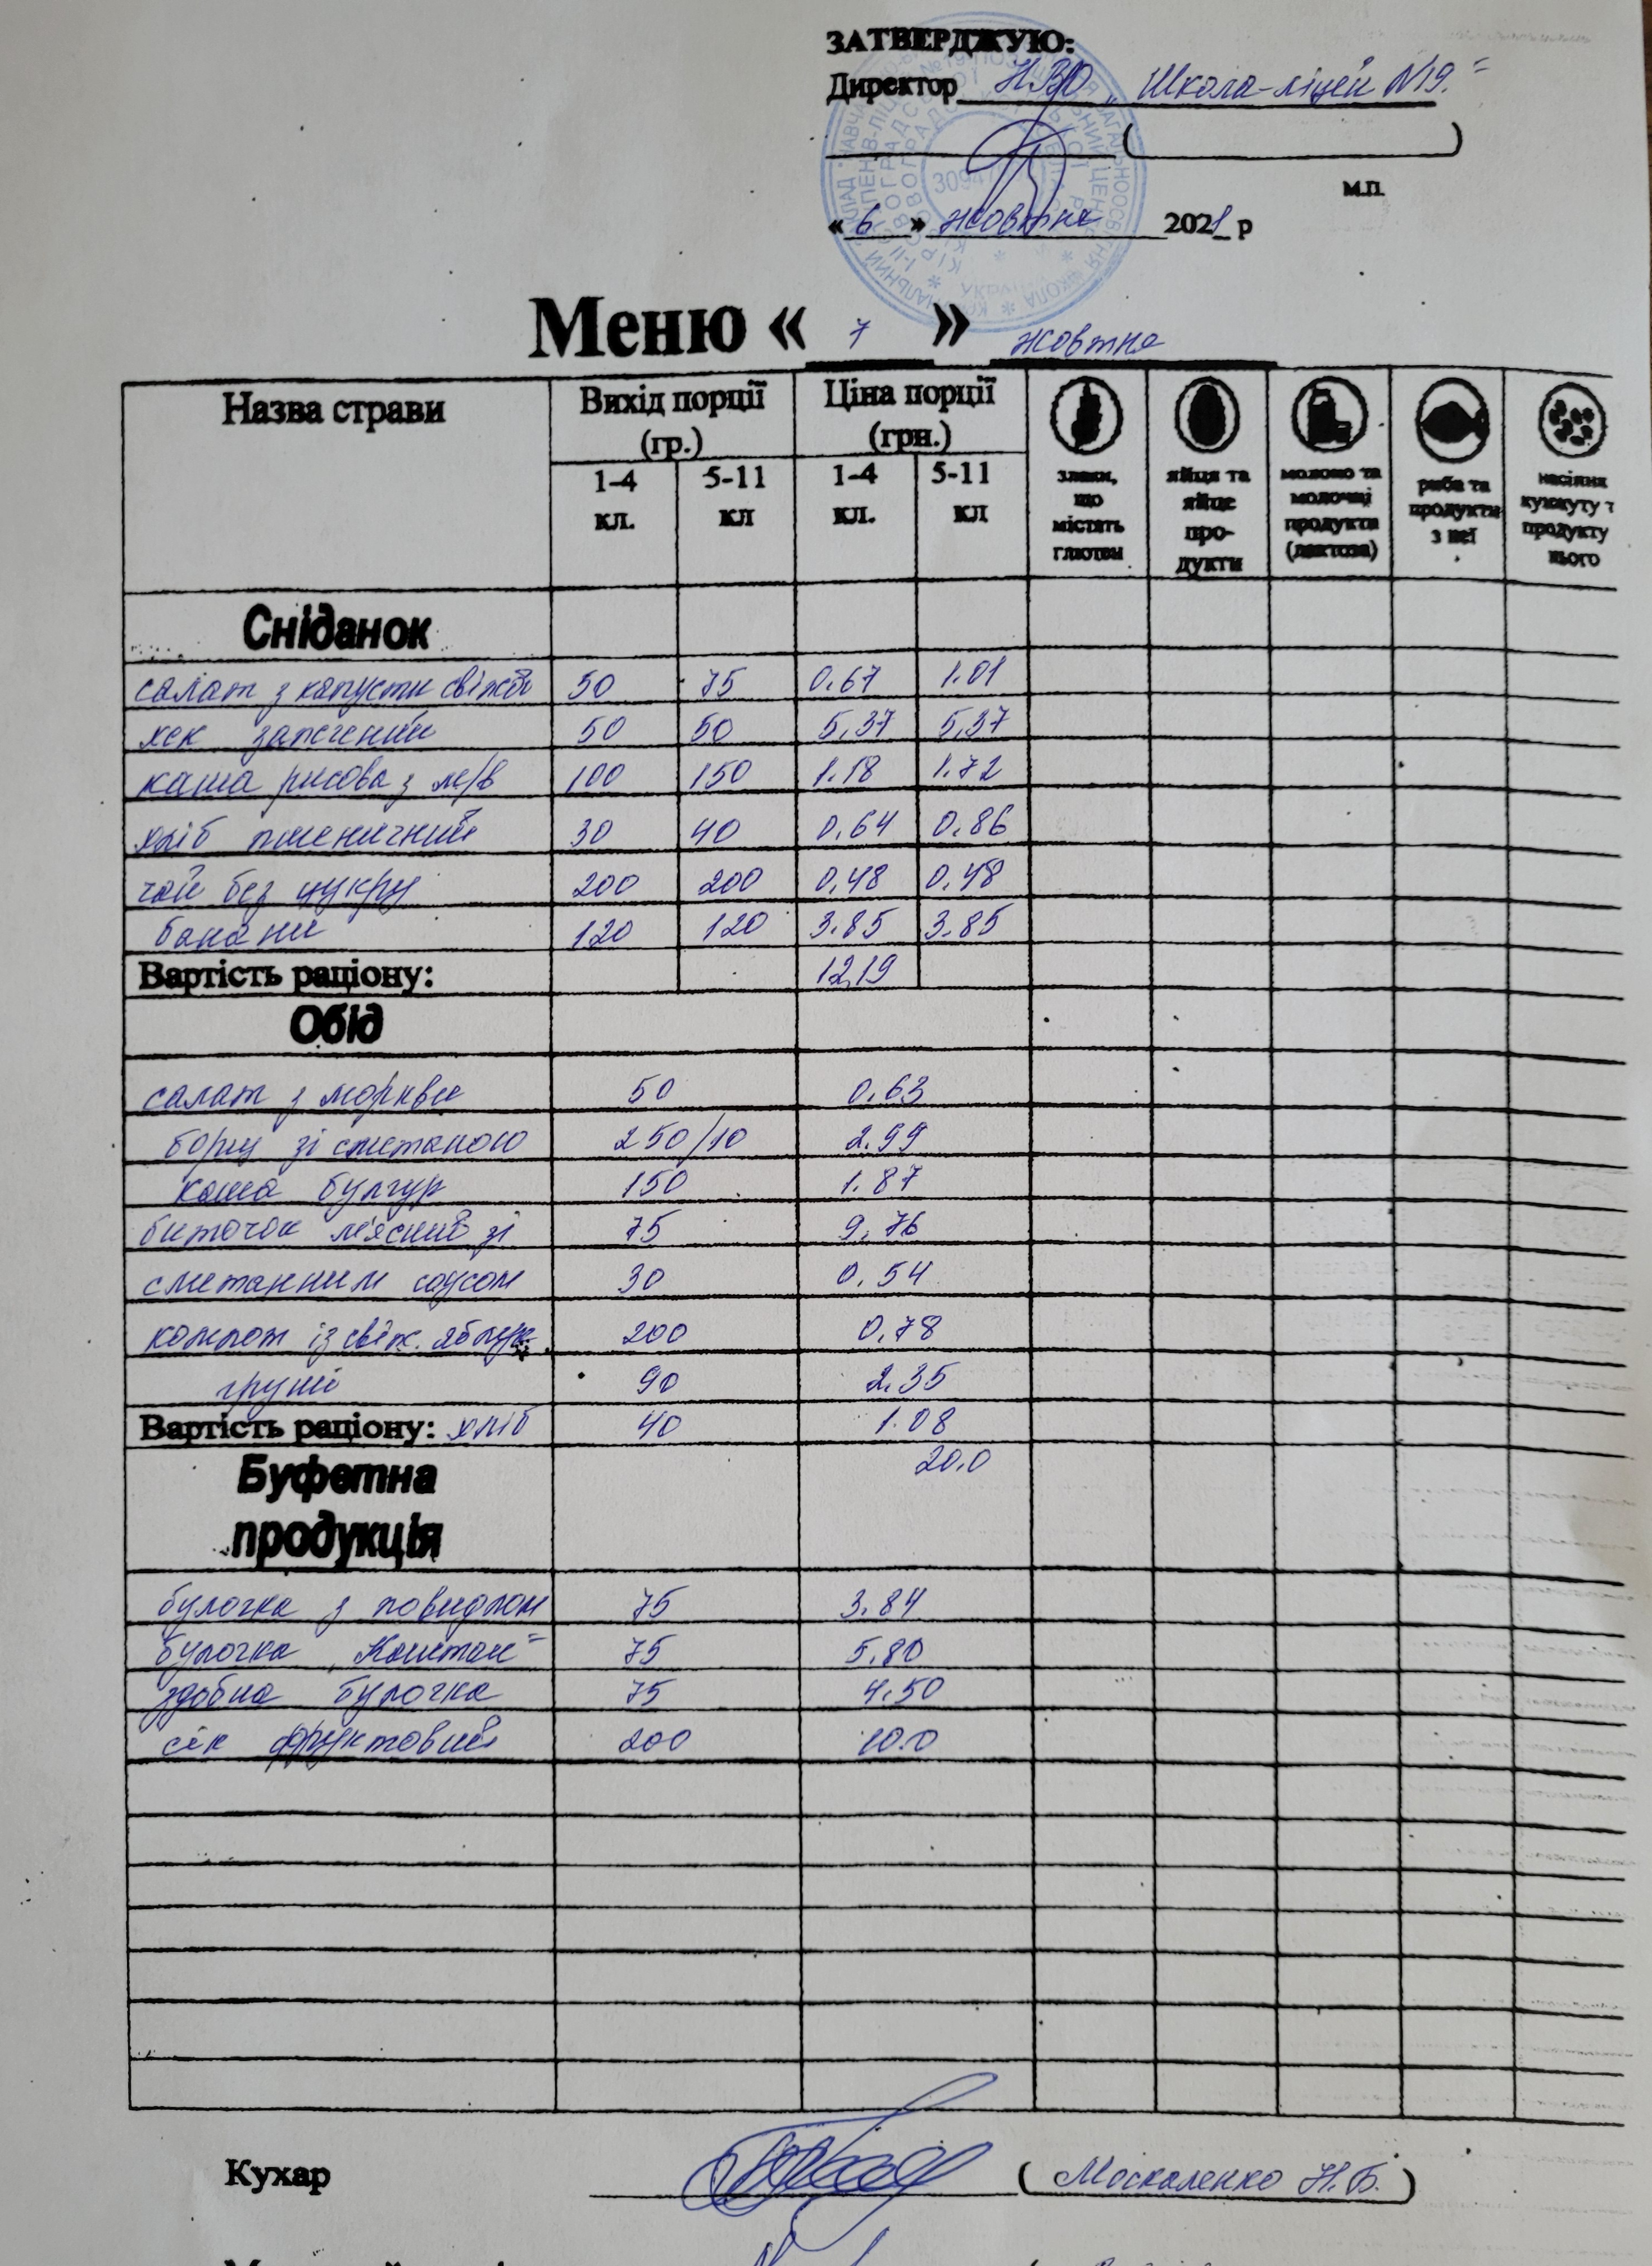 ЗАТВЕРДЖУЮ:
Директор НВО „Школа-ліцей №19"
( )
М.П.
« 6 » жовтня 2021 р
Меню « 7 » жовтня
Назва страви Вихід порції (гр.) Ціна порції (грн.)
1-4 кл. 5-11 кл 1-4 кл. 5-11 кл
злаки, що містять глютен
яйця та яйце про-дукти
молоко та молочні продукти (лактоза)
риба та продукти з неї
насіння кунжуту т продукту нього
Сніданок
салат з капусти свіжої 50 75 0.67 1.01
хек запечений 50 50 5,37 5,37
каша рисова з м/в 100 150 1.18 1.72
хліб пшеничний 30 40 0.64 0.86
чай без цукру 200 200 0,48 0.48
банани 120 120 3.85 3.85
Вартість раціону: 12,19
Обід
салат з моркви 50 0,63
борщ зі сметаною 250/10 2.99
каша булгур 150 1.87
биточок м'ясний зі 75 9,76
сметанним соусом 30 0.54
компот із свіж. яблук 200 0,78
груші 90 2.35
Вартість раціону: хліб 40 1.08
20.0
Буфетна
продукція
булочка з повидлом 75 3.84
булочка „Каштан" 75 5.80
здобна булочка 75 4.50
сік фруктовий 200 10.0
Кухар ( Москаленко Н.Б. )